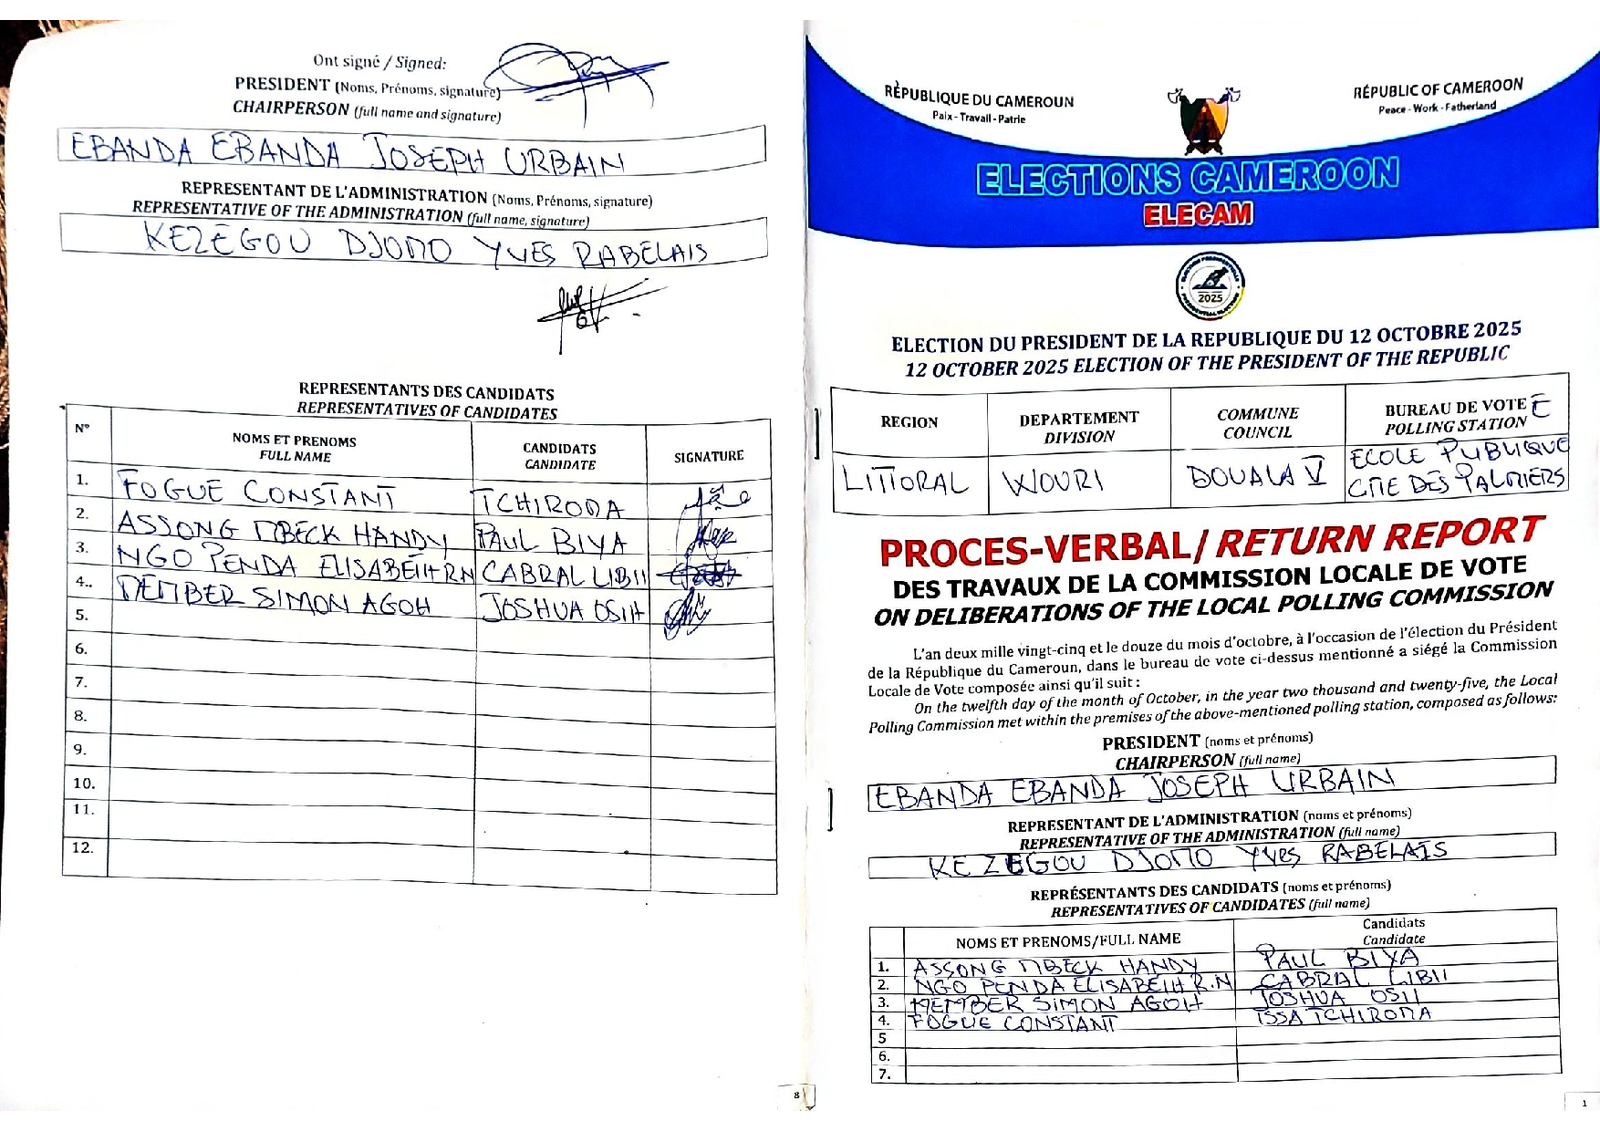 Ont signé / Signed:
PRESIDENT (Noms, Prénoms, signature)
CHAIRPERSON (full name and signature)
EBANDA EBANDA JOSEPH URBAIN
REPRESENTANT DE L'ADMINISTRATION (Noms, Prénoms, signature)
REPRESENTATIVE OF THE ADMINISTRATION (full name, signature)
KEZEGOU DJOMO YVES RABELAIS
REPRESENTANTS DES CANDIDATS
REPRESENTATIVES OF CANDIDATES
N° NOMS ET PRENOMS FULL NAME CANDIDATS CANDIDATE SIGNATURE
1. FOGUE CONSTANT TCHIROMA
2. ASSONG MBECK HANDY PAUL BIYA
3. NGO PENDA ELISABETH RN CABRAL LIBII
4.. MEMBER SIMON AGOH JOSHUA OSIH
5.
6.
7.
8.
9.
10.
11.
12.
8
RÉPUBLIQUE DU CAMEROUN
Paix - Travail - Patrie
RÉPUBLIC OF CAMEROON
Peace - Work - Fatherland
ELECTIONS CAMEROON
ELECAM
2025
ELECTION DU PRESIDENT DE LA REPUBLIQUE DU 12 OCTOBRE 2025
12 OCTOBER 2025 ELECTION OF THE PRESIDENT OF THE REPUBLIC
REGION DEPARTEMENT DIVISION COMMUNE COUNCIL BUREAU DE VOTE E POLLING STATION
LITTORAL WOURI DOUALA V ECOLE PUBLIQUE CITE DES PALMIERS
PROCES-VERBAL/ RETURN REPORT
DES TRAVAUX DE LA COMMISSION LOCALE DE VOTE
ON DELIBERATIONS OF THE LOCAL POLLING COMMISSION
L'an deux mille vingt-cinq et le douze du mois d'octobre, à l'occasion de l'élection du Président
de la République du Cameroun, dans le bureau de vote ci-dessus mentionné a siégé la Commission
Locale de Vote composée ainsi qu'il suit :
On the twelfth day of the month of October, in the year two thousand and twenty-five, the Local
Polling Commission met within the premises of the above-mentioned polling station, composed as follows:
PRESIDENT (noms et prénoms)
CHAIRPERSON (full name)
EBANDA EBANDA JOSEPH URBAIN
REPRESENTANT DE L'ADMINISTRATION (noms et prénoms)
REPRESENTATIVE OF THE ADMINISTRATION (full name)
KEZEGOU DJOMO YVES RABELAIS
REPRÉSENTANTS DES CANDIDATS (noms et prénoms)
REPRESENTATIVES OF CANDIDATES (full name)
NOMS ET PRENOMS/FULL NAME Candidats Candidate
1. ASSONG MBECK HANDY PAUL BIYA
2. NGO PENDA ELISABETH R.N CABRAL LIBII
3. MEMBER SIMON AGOH JOSHUA OSIH
4. FOGUE CONSTANT ISSA TCHIROMA
5
6.
7.
1